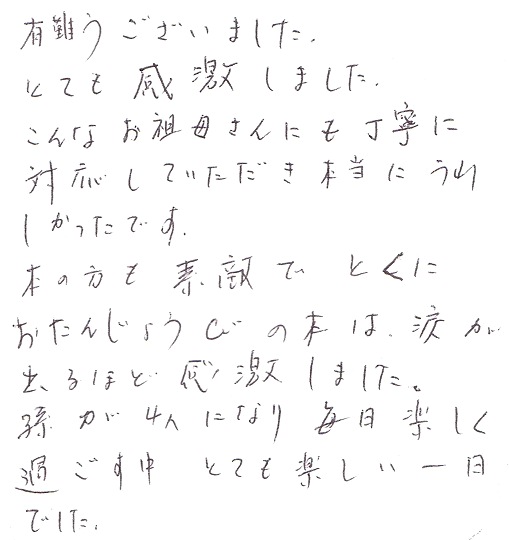 有難うございました.
とても感激しました.
こんなお祖母さんにも丁寧に
対応していただき本当にうれ
しかったです.
本の方も素敵で とくに
おたんじょうびの本は、涙が
出るほど感激しました。
孫が4人になり 毎日楽しく
過ごす中 とても楽しい一日
でした.